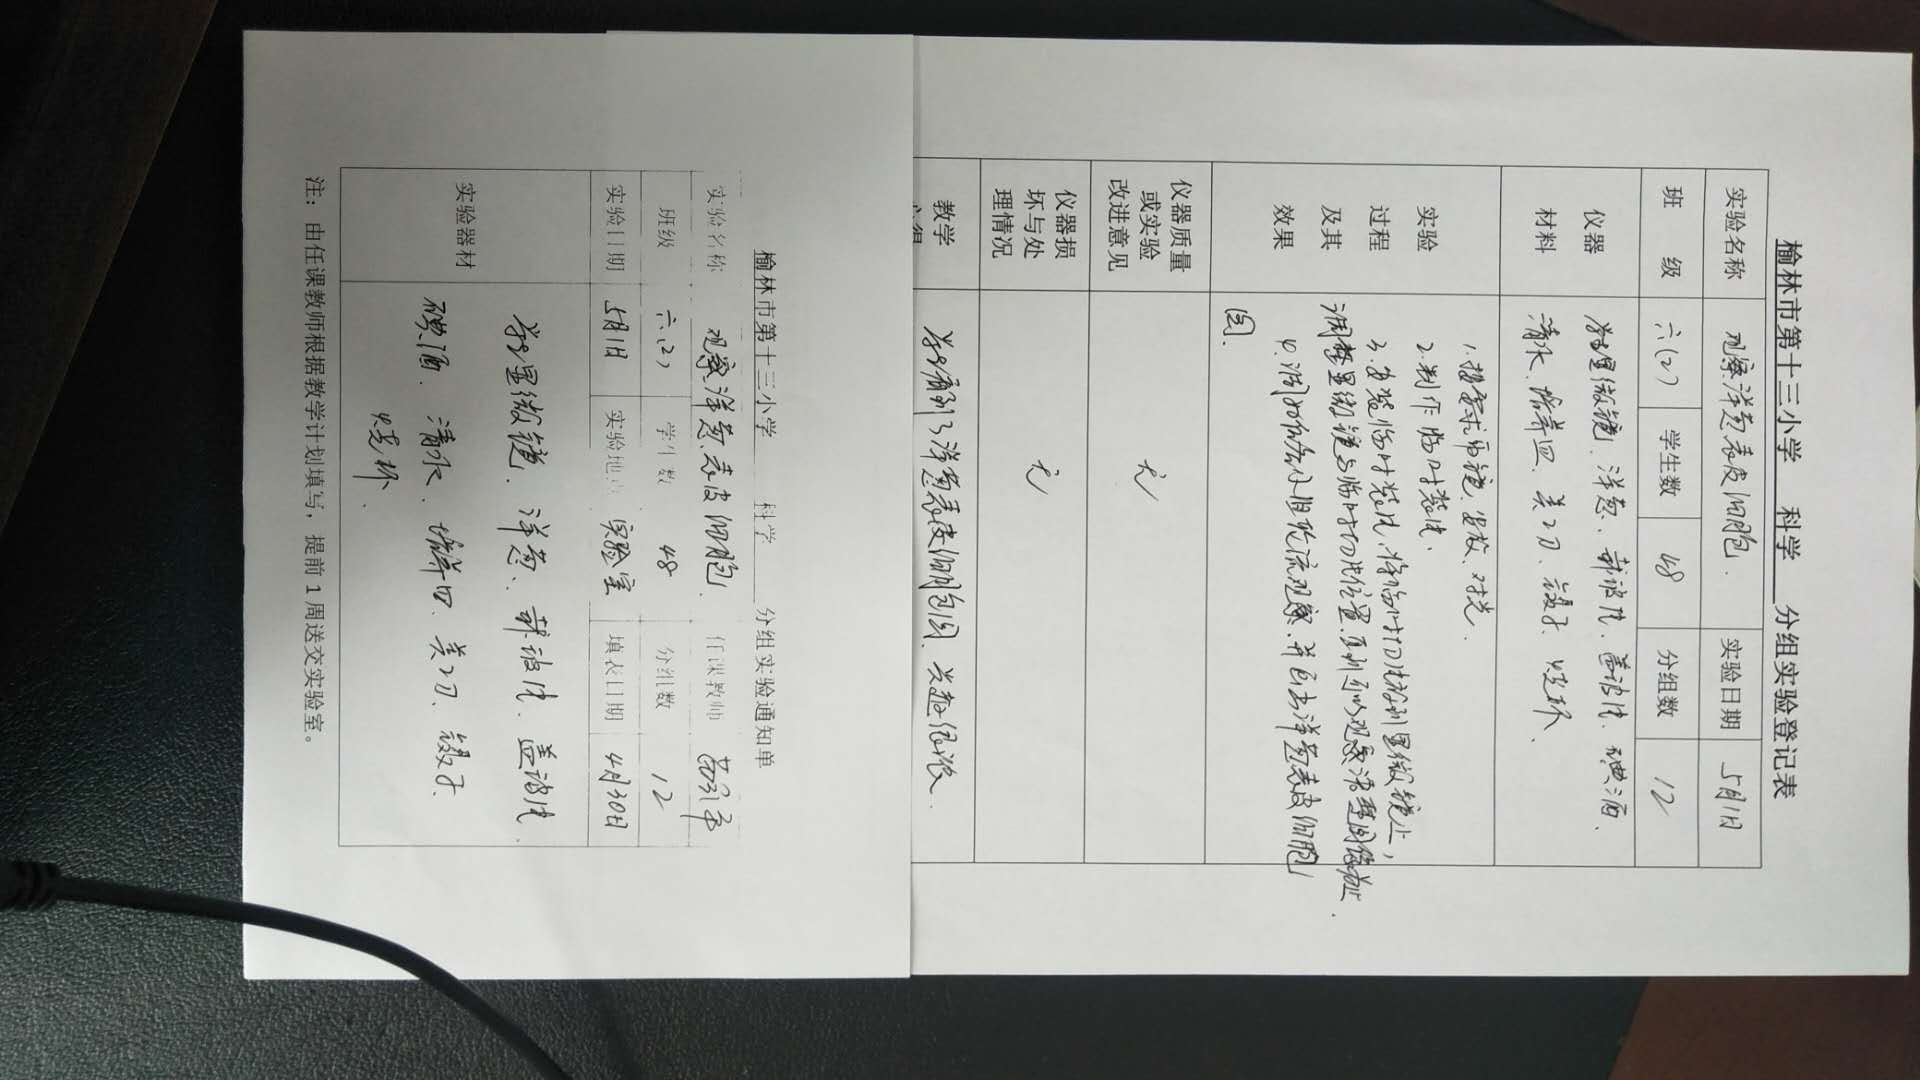 榆林市第十三小学 科学 分组实验登记表
实验名称 观察洋葱表皮细胞. 实验日期 5月1日
班 级 六(2) 学生数 48 分组数 12
仪器 学生显微镜、洋葱、载玻片、盖玻片、碘酒、
材料 清水、培养皿、美工刀、镊子、烧杯、
实验
过程
及其
效果
1.按要求 安放、对光.
2.制作临时装片.
3.安验临时装片,将临时切片放到显微镜上,
调整显微镜与临时切片位置,直到可以观察清楚图像为止.
4.调 观察,并画出洋葱表皮细胞
图.
仪器质量
或实验
改进意见
无
仪器损
坏与处
理情况
无
教学 学生看到了洋葱表皮细胞图,兴趣很浓.
榆林市第十三小学 科学 分组实验通知单
实验名称 观察洋葱表皮细胞. 任课教师
班级 六(2) 学生数 48 分组数 12
实验日期 5月1日 实验地点 实验室 填表日期 4月30日
实验器材
学生显微镜、洋葱、载玻片、盖玻片、
碘酒、清水、培养皿、美工刀、镊子、
烧杯.
注：由任课教师根据教学计划填写，提前1周送交实验室。